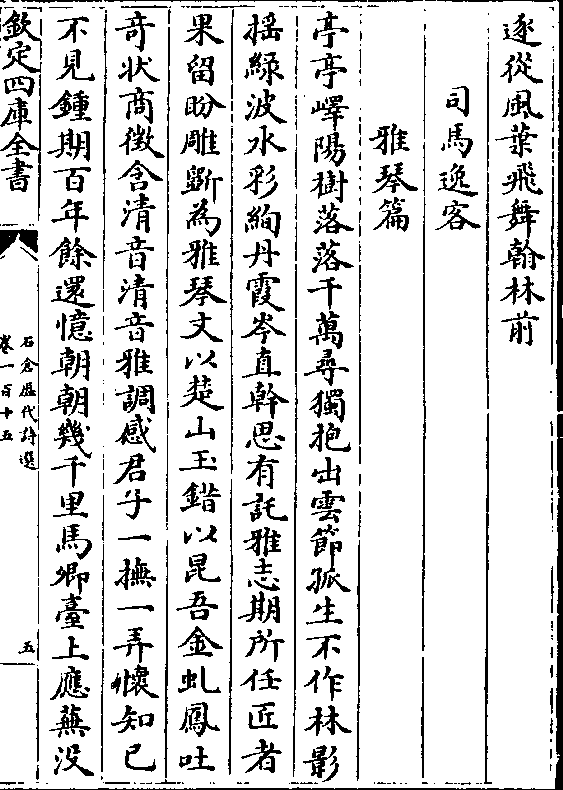 逐從風葉飛舞翰林前
司馬逸客
雅琴篇
亭亭嶧陽樹落落千萬尋獨抱出雲節孤生不作林影
揺緑波水彩絢丹霞岑直幹思有託雅志期所任匠者
果留盼雕斵為雅琴文以楚山玉錯以昆吾金虬鳳吐
竒狀商徴含清音清音雅調感君子一撫一弄懐知己
不見鍾期百年餘還憶朝朝幾千里馬卿臺上應蕪没
欽定四庫全書
石倉歴代詩選
卷一百十五
五